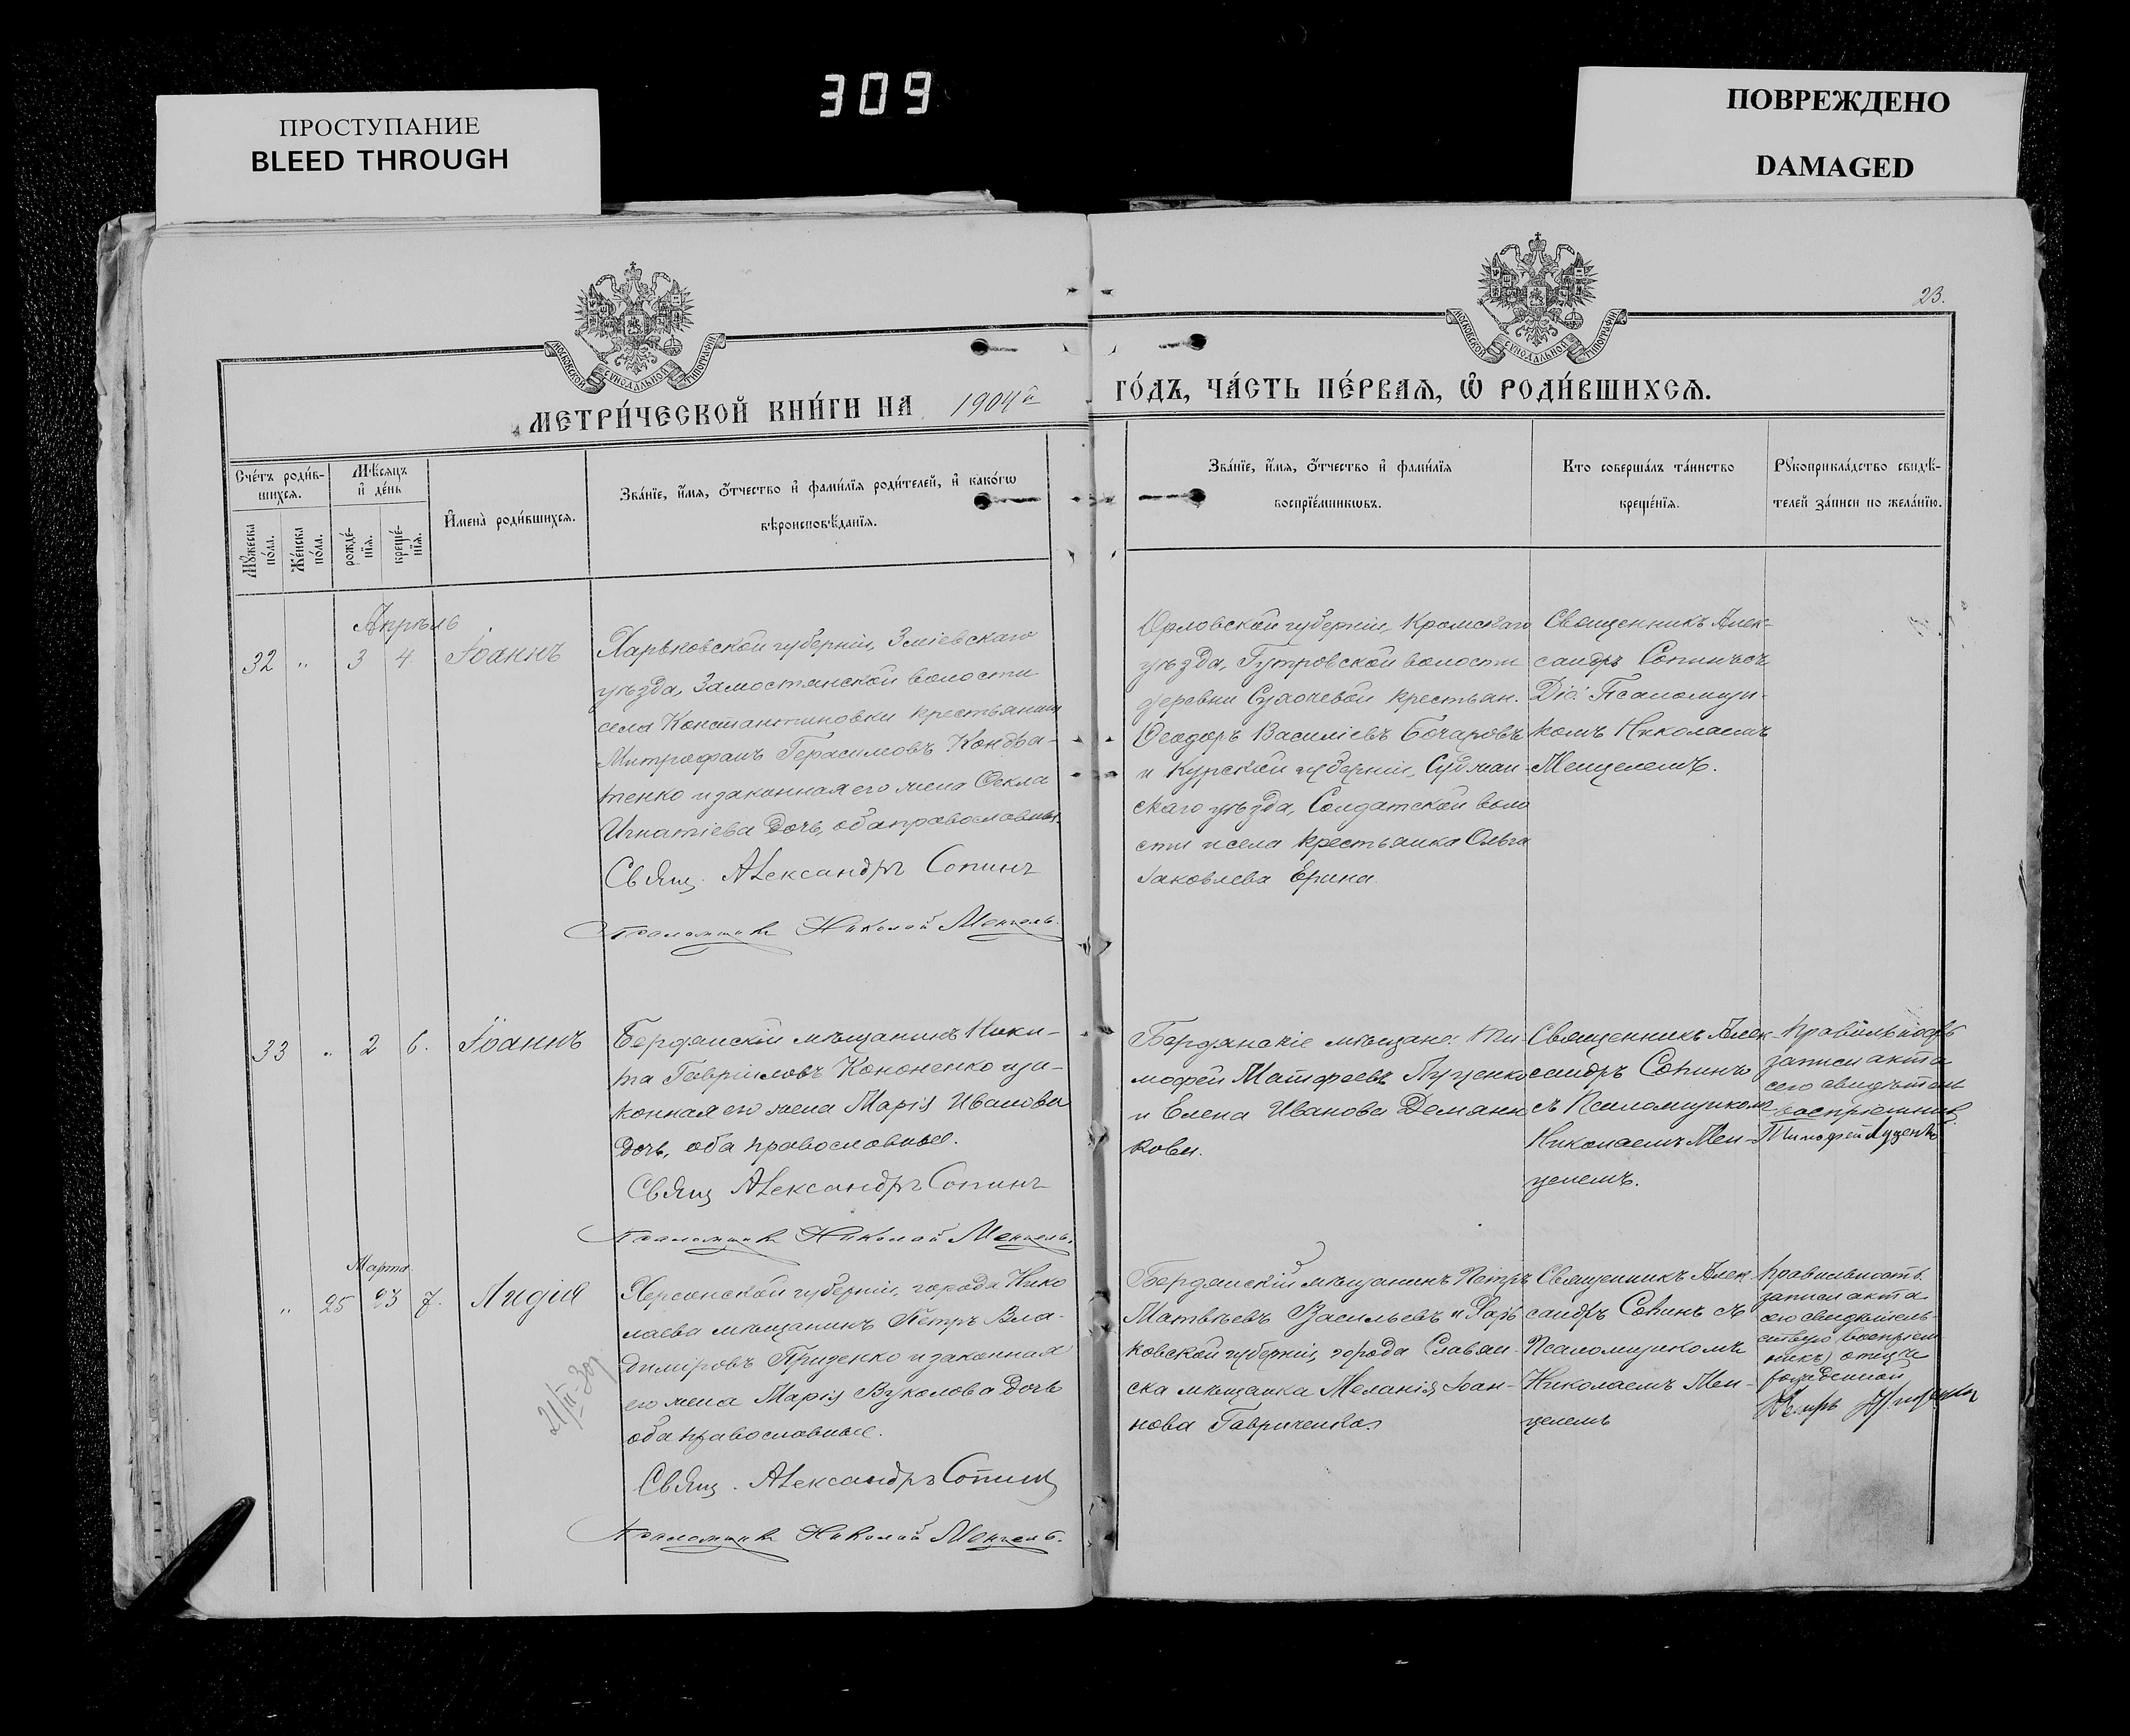 309
ПРОСТУПАНИЕ
BLEED THROUGH
ПОВРЕЖДЕНО
DAMAGED
23.
МОСКОВСКОЙ СѴНОДАЛЬНОЙ ТИПОГРАФІИ
МОСКОВСКОЙ СѴНОДАЛЬНОЙ ТИПОГРАФІИ
МЕТРИ́ЧЕСКОЙ КНИ́ГИ НА 1904й ГО́ДЪ, ЧА́СТЬ ПЕ́РВАЯ, Ѽ РОДИ́ВШИХСЯ.
Сче́тъ роди́в-
шихся.
Мѣ́сяцъ
и де́нь
Мꙋ́жеска
по́ла.
Же́нска
по́ла.
рожде́-
нїя.
креще́-
нїя.
И҆мена̀ роди́вшихся.
Зва́нїе, и҆́мя, ѻ҆́тчество и҆ фами́лїя роди́телей, и҆ како́гѡ
вѣроисповѣ́данїя.
Зва́нїе, и҆́мя, ѻ҆́тчество и҆ фами́лїя
воспрїе́мникѡвъ.
Кто соверша́лъ та́инство
креще́нїя.
Рꙋкоприкла́дство свидѣ́-
телей за́писи по жела́нїю.
Апрѣль
32 „ 3 4 Іоаннъ
Харьковской губерніи, Зміевскаго
уѣзда, Замостянской волости
села Константиновки крестьянинъ
Митрофанъ Герасимовъ Кондра-
тенко и законная его жена Ѳекла
Игнатіева дочь, оба православные.
Свящ. Александръ Сопинъ
Псаломщикъ Николай Менцель.
Орловской губерніи, Кромскаго
уѣзда, Гутровской волости
деревни Сухочевой крестьян.
Ѳеодоръ Василіевъ Бочаровъ
и Курской губерніи, Суджан-
скаго уѣзда, Солдатской воло
сти и села крестьянка Ольга
Іаковлева Ерина.
Священникъ Алек-
сандръ Сопинъ съ
Псаломщи-
комъ Николаемъ
Менцелемъ.
33 „ 2 6. Іоаннъ
Бердянскій мѣщанинъ Ники-
та Гавріиловъ Кононенко и за-
конная его жена Марія Иванова
дочь, оба православные.
Свящ Александръ Сопинъ
Псаломщикъ Николай Менцель.
Бердянскіе мѣщане: Ти-
мофей Матфеевъ Луценко
и Елена Иванова Демянни
кова.
Священникъ Алек-
сандръ Сопинъ
съ Псаломщикомъ
Николаемъ Мен-
целемъ.
Правильность
записи акта
сего свидѣтель
воспріемникъ
Тимофей Луценко
Марта
„ 25 23 7. Лидія
Херсонской губерніи, города Нико
лаева мѣщанинъ Петръ Вла-
диміровъ Гриценко и законная
его жена Марія Вуколова дочь
оба православные.
Свящ. Александръ Сопинъ
Псаломщикъ Николай Менцель.
Бердянскій мѣщанинъ Петръ
Матвѣевъ Васильевъ и Харь
ковской губерніи, города Славян-
ска мѣщанка Меланія Іоан-
нова Гавриченкова
Священникъ Алек
сандръ Сопинъ съ
Псаломщикомъ
Николаемъ Мен-
целемъ
Правильность
записи акта
сего свидѣтель-
ствую
отецъ
рожденной
Петръ